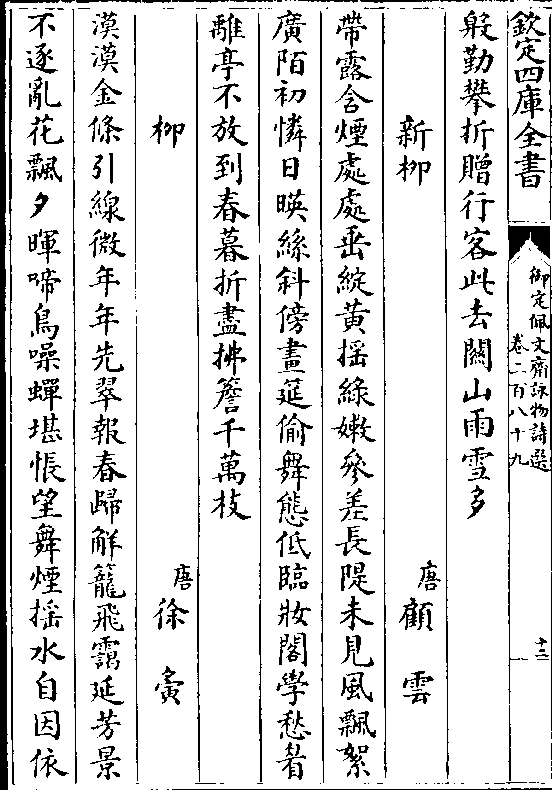 欽定四庫全書
御定佩文齋詠物詩選
卷二百八十九
十二
殷勤攀折贈行客此去關山雨雪多
新柳
唐
顧雲
帶露含煙處處垂綻黃揺綠嫩參差長隄未見風飄絮
廣陌初憐日暎絲斜傍畫筵偷舞態低臨妝閣學愁眉
離亭不放到春暮折盡拂簷千萬枝
柳
唐
徐夤
漠漠金條引線微年年先翠報春歸解籠飛靄延芳景
不逐亂花飄夕暉啼鳥噪蟬堪悵望舞煙揺水自因依